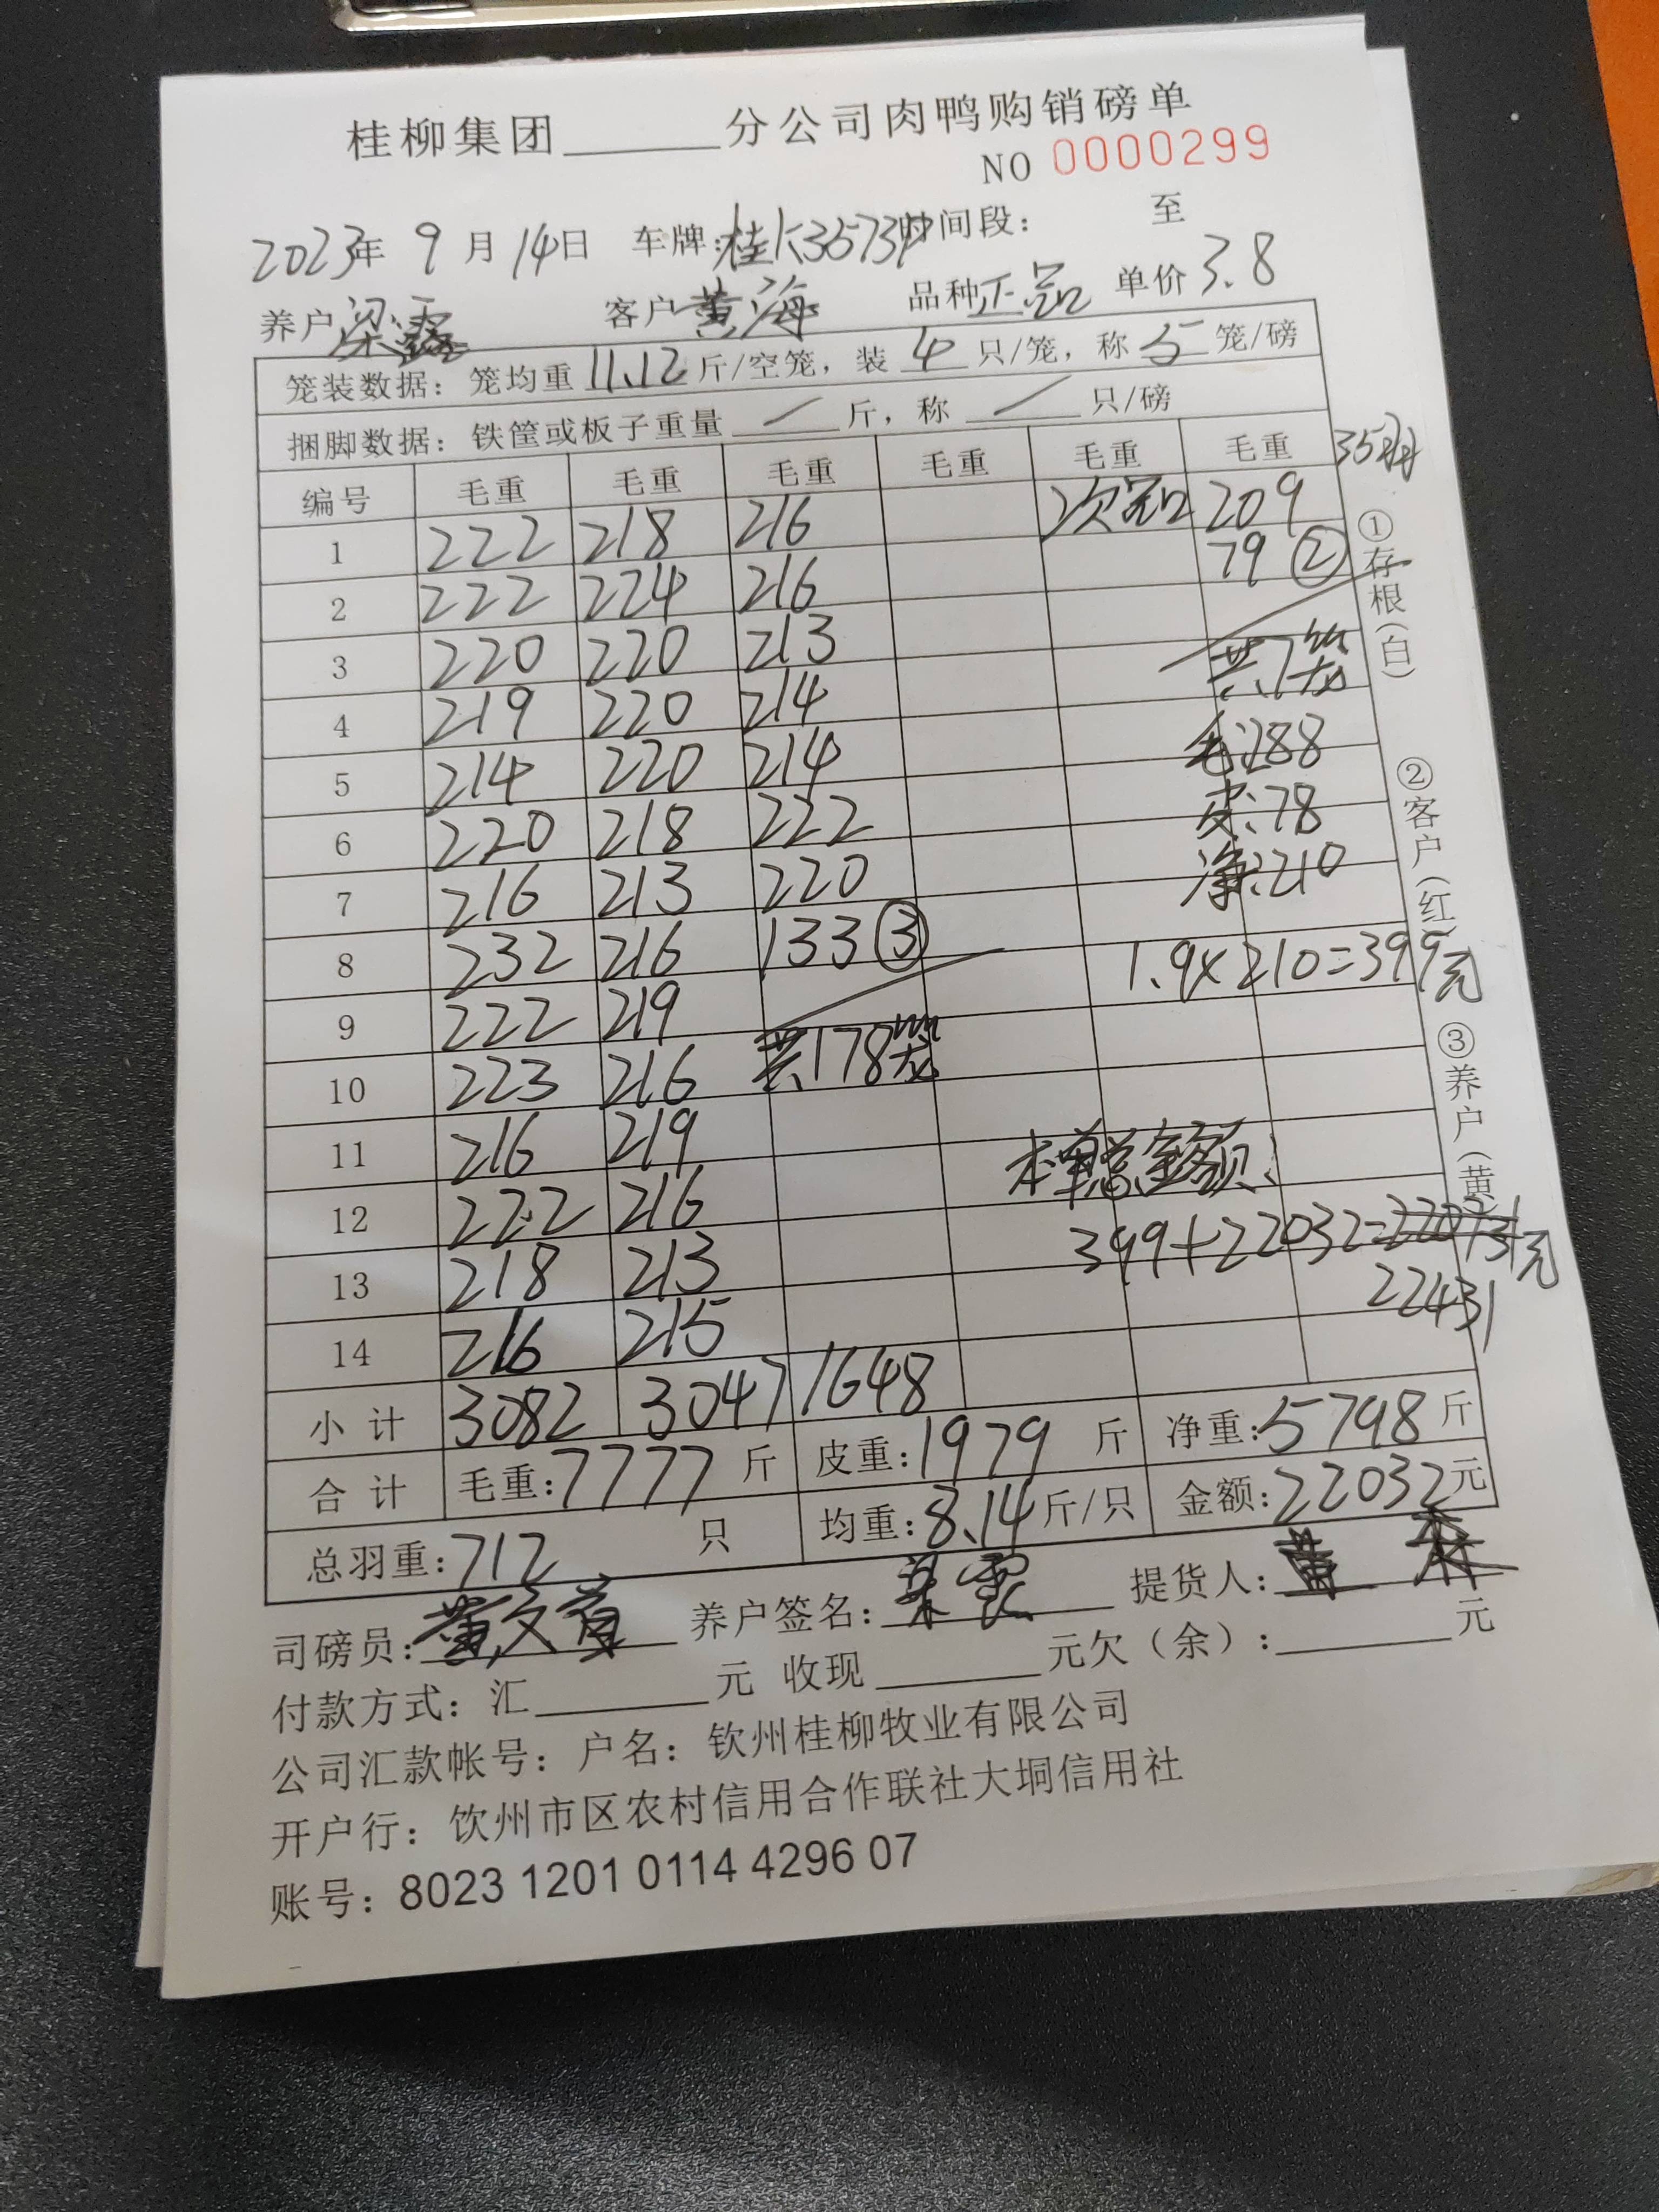 桂柳集团______分公司肉鸭购销磅单
NO 0000299
2023年 9 月 14日 车牌:桂K3573P 时间段: 至
养户 客户 黄海 品种 正品 单价 3.8
笼装数据: 笼均重 11.12 斤/空笼, 装 4 只/笼, 称 5 笼/磅
捆脚数据: 铁筐或板子重量 / 斤, 称 / 只/磅
编号 毛重 毛重 毛重 毛重 毛重 毛重
1 222 218 216 次品 209
2 222 224 216 79 ②
3 220 220 213 共7笼
4 219 220 214 毛:288
5 214 220 214 皮:78
6 220 218 222 净:210
7 216 213 220
8 232 216 133 ③ 1.9×210=399元
9 222 219
10 223 216 共178笼
11 216 219 本单总金额:
12 222 216 399+22032=元
13 218 213 22431
14 216 215
小计 3082 3047 1648
合计 毛重:7777 斤 皮重:1979 斤 净重:5798 斤
总羽重:712 只 均重:8.14斤/只 金额:22032元
司磅员: 养户签名: 提货人:
付款方式: 汇______元 收现______元欠(余):______元
公司汇款帐号: 户名: 钦州桂柳牧业有限公司
开户行: 钦州市区农村信用合作联社大垌信用社
账号: 8023 1201 0114 4296 07
①存根(白) ②客户(红) ③养户(黄